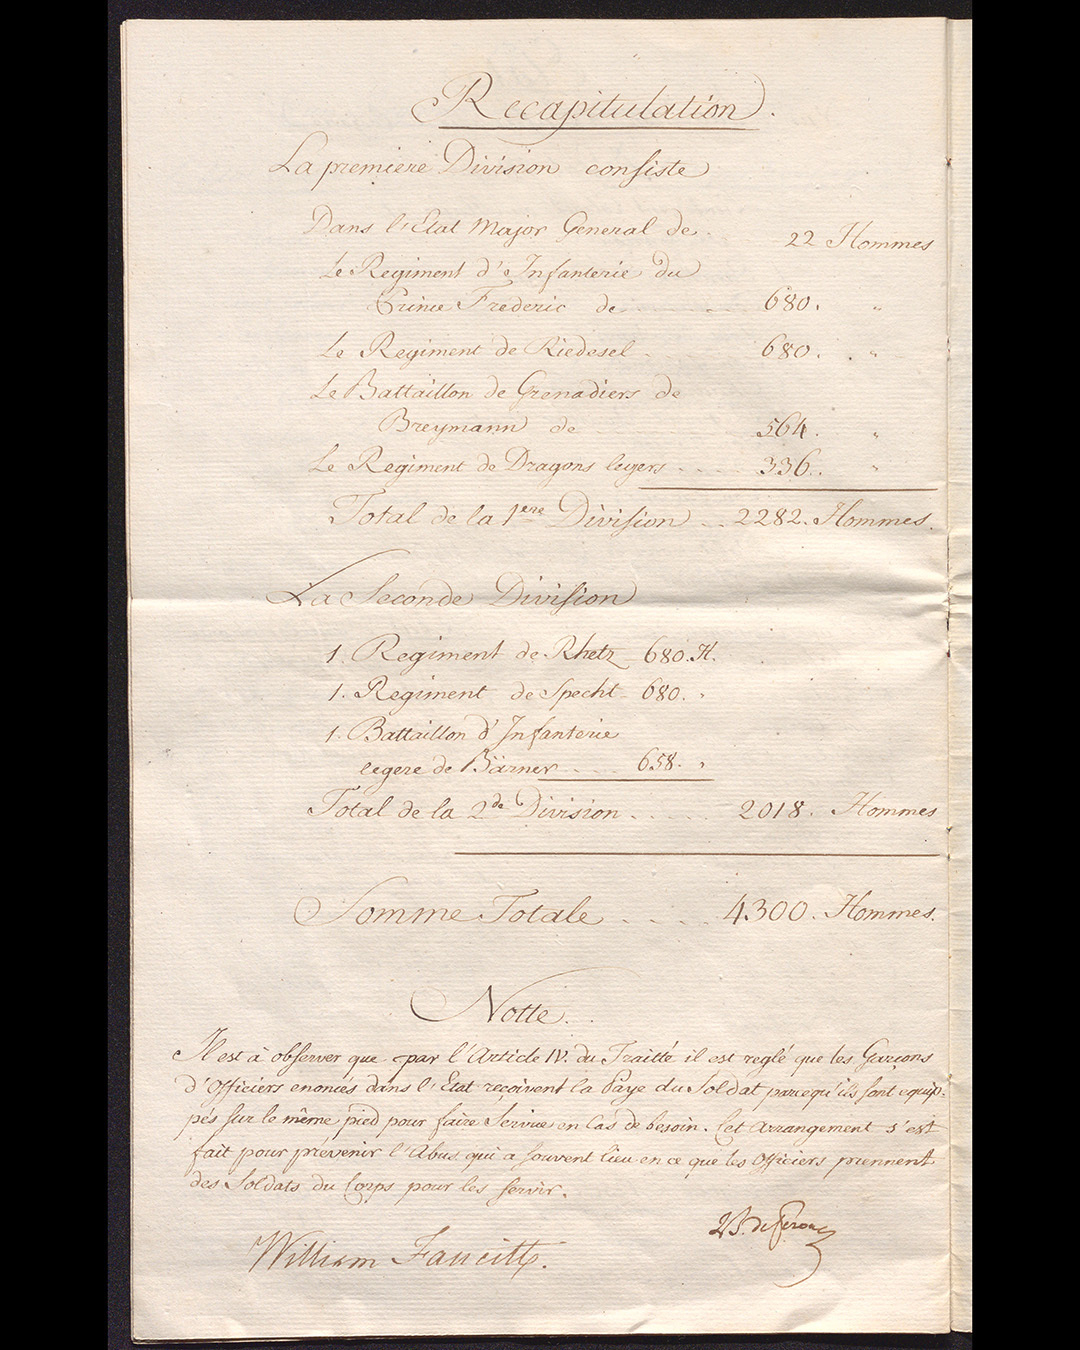 Recapitulation.
La premiere Division consiste
Dans l'Etat Major General de . 22 Hommes
Le Regiment d'Infanterie du
Prince Frederic de ........ 680. "
Le Regiment de Riedesel . 680. . "
Le Battaillon de Grenadiers de
Breymann de 564. "
Le Regiment de Dragons legers .... 336. "
Total de la 1ere Division .. 2282. Hommes.
La Seconde Division
1. Regiment de Rhetz 680. H.
1. Regiment de Specht 680. "
1. Battaillon d'Infanterie
legere de Bärner .... 658. "
Total de la 2de Division ..... 2018. Hommes
Somme Totale .... 4300. Hommes.
Notte.
Il est à observer que par l'Article IV. du Traitté il est reglé que les Garçons
d'Officiers enoncés dans l'Etat reçoivent la Paye du Soldat parcequ'ils sont equip-
pés sur le même pied pour faire Service en Cas de besoin. Cet Arrangement s'est
fait pour prevenir l'Abus qui a souvent lieu en ce que les Officiers prennent
des Soldats du Corps pour les servir.
de Feronce
William Faucitt.